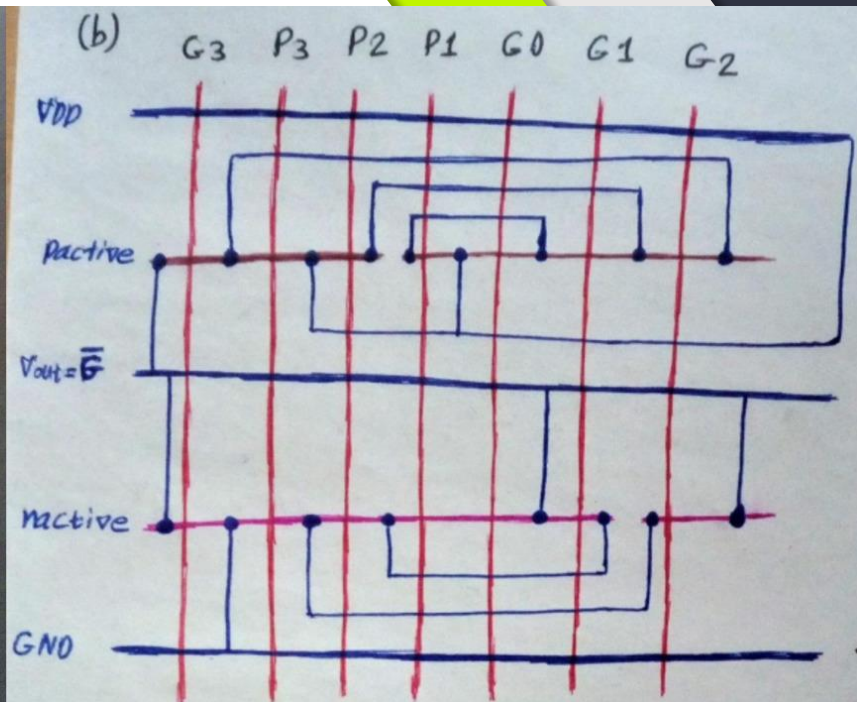 (b)
G3 P3 P2 P1 G0 G1 G2
VDD
Pactive
Vout = G̅
nactive
GND